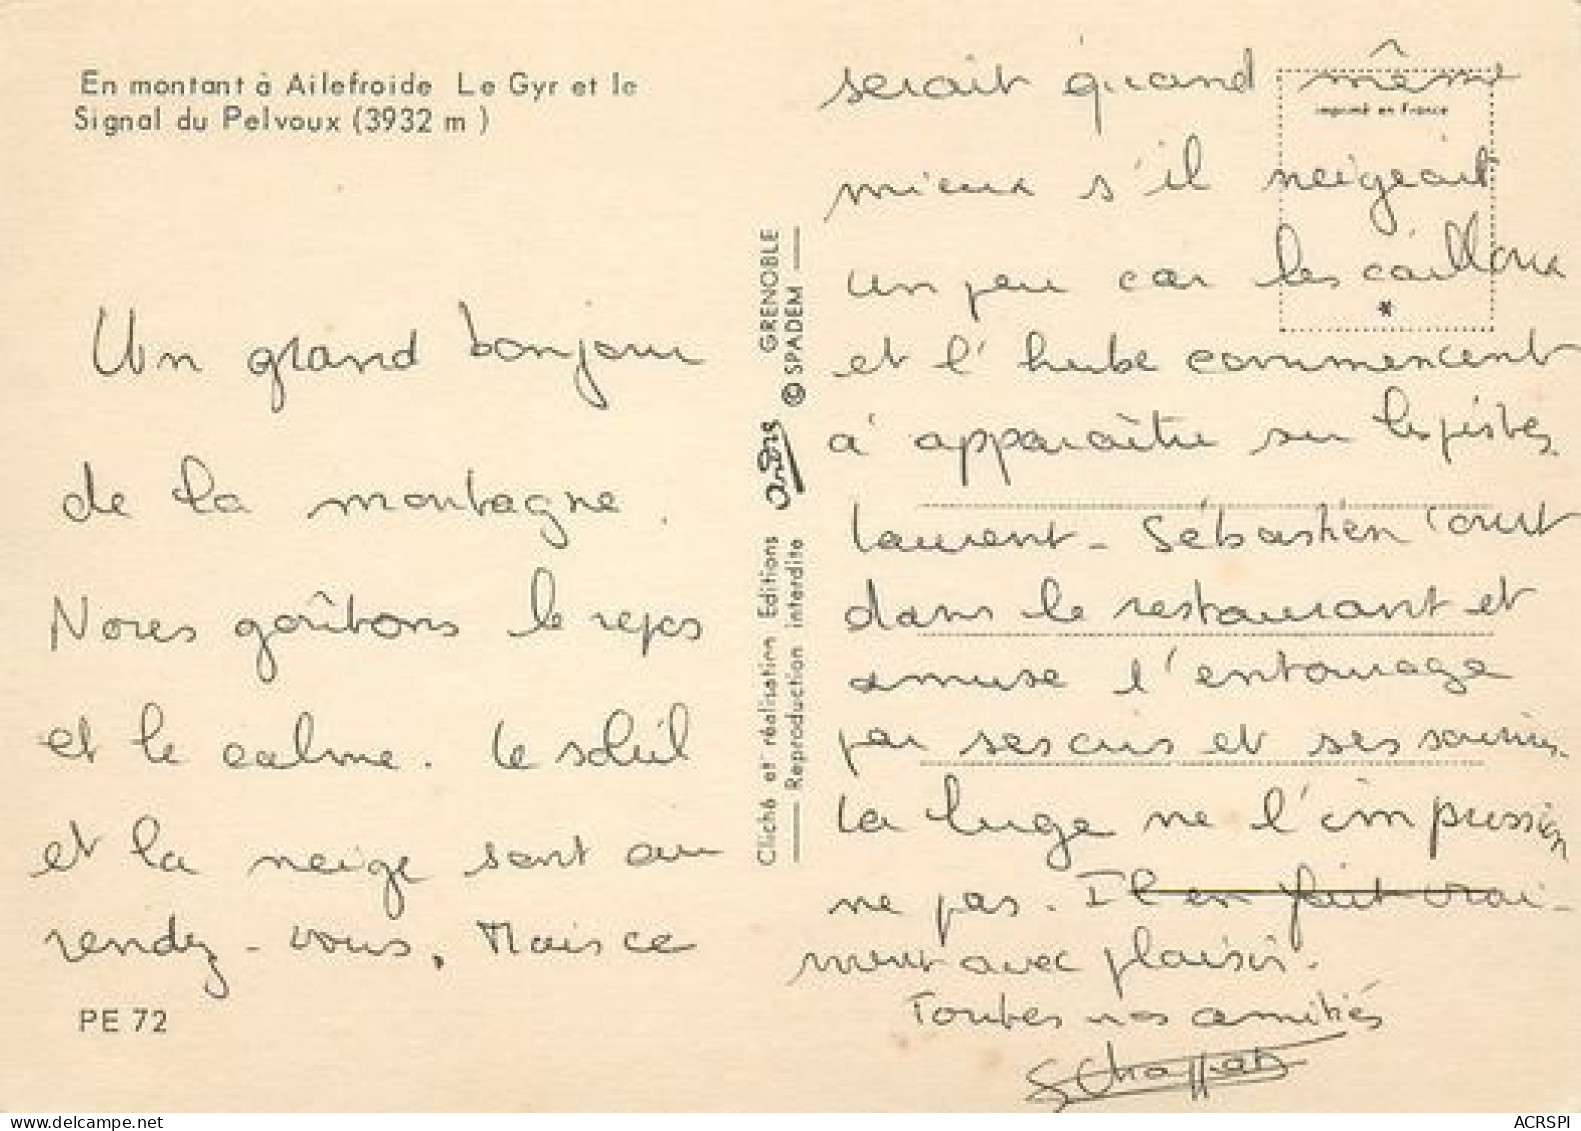 En montant à Ailefroide Le Gyr et le
Signal du Pelvoux (3932 m )
Un grand bonjour
de la montagne.
Nous goûtons le repos
et le calme. Le soleil
et la neige sont au
rendez-vous. Mais ce
PE 72
Cliché et réalisation Editions André GRENOBLE
Reproduction interdite © SPADEM
imprimé en France
serait quand même
mieux s'il neigeait
un peu car les cailloux
et l'herbe commencent
à apparaître sur les pistes.
Laurent-Sébastien court
dans le restaurant et
amuse l'entourage
par ses cris et ses sourires.
La luge ne l'impression
ne pas. Il en fait vrai-
ment avec plaisir.
Toutes nos amitiés
ACRSPI